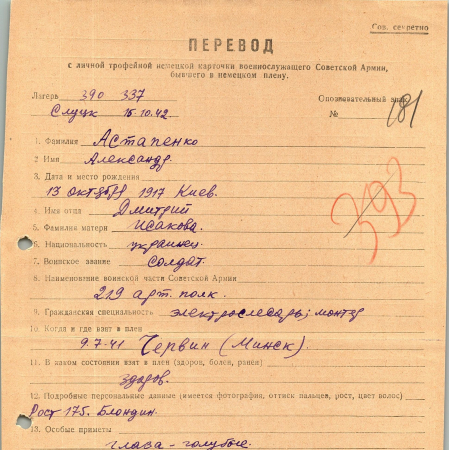 Сов. секретно
ПЕРЕВОД
с личной трофейной немецкой карточки военнослужащего Советской Армии,
бывшего в немецком плену.
Лагерь 390 337
Слуцк 15.10.42
Опознавательный знак
№ 181
1. Фамилия Астапенко
2 Имя Александр.
3. Дата и место рождения
13 октября 1917 Киев.
393
4. Имя отца Дмитрий
5. Фамилия матери Исакова.
6. Национальность украинец.
7. Воинское звание солдат.
8. Наименование воинской части Советской Армии
219 арт. полк.
9. Гражданская специальность электрослесарь; монтер
10. Когда и где взят в плен
9.7-41 Червин (Минск)
11. В каком состоянии взят в плен (здоров, болен, ранен)
здоров.
12. Подробные персональные данные (имеется фотография, оттиск пальцев, рост, цвет волос)
Рост 175. Блондин.
13. Особые приметы
глаза - голубые.